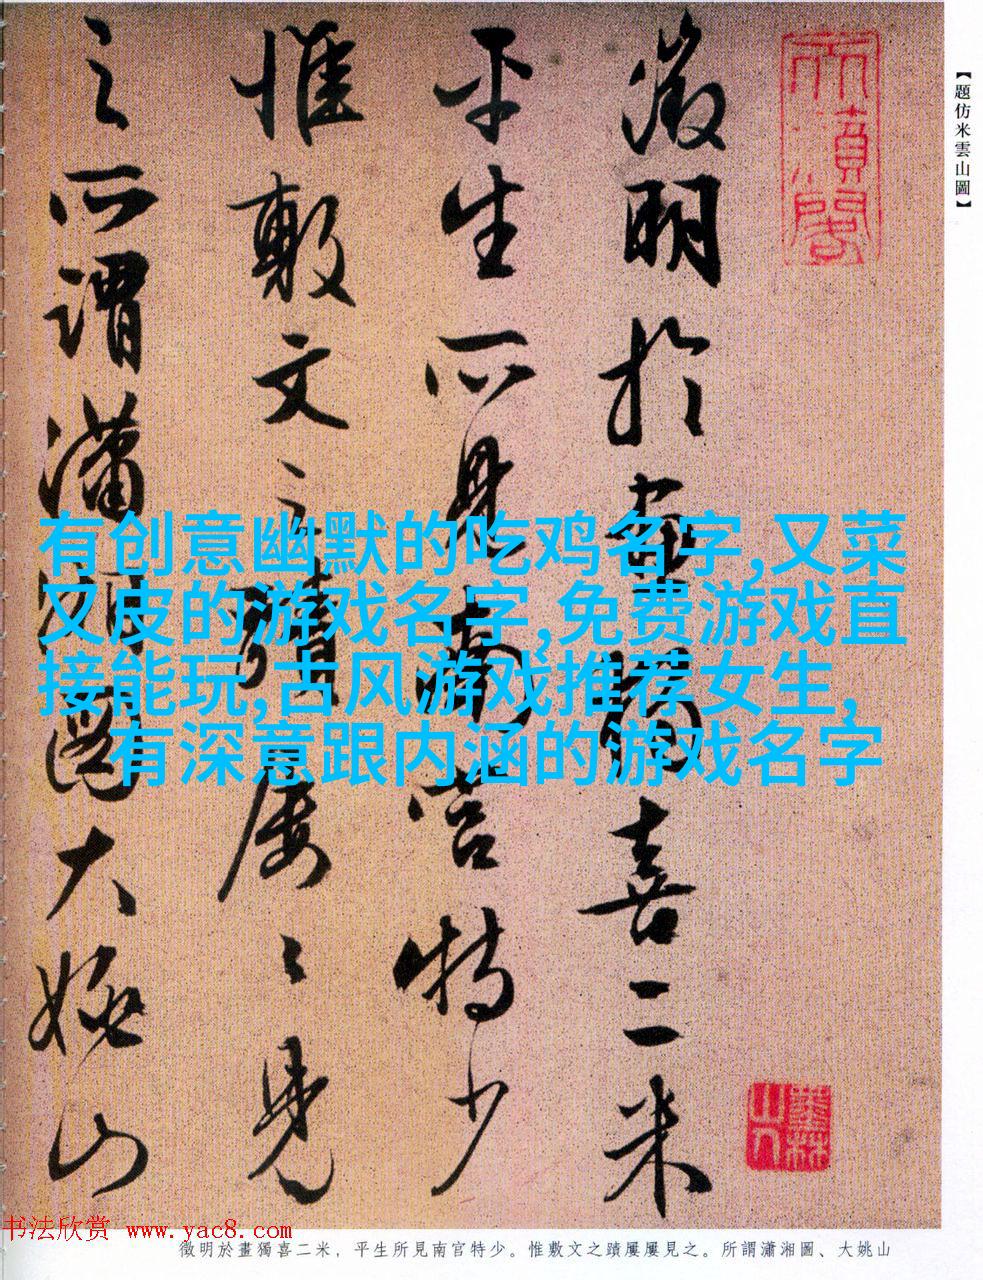 【題仿米雲山圖】
徵明於畫獨喜二米
平生所見南宮特少
惟敷文之蹟屢屢見
之所謂瀟湘圖大姚山
有创意幽默的吃鸡名字,又菜
又皮的游戏名字,免费游戏直
接能玩,古风游戏推荐女生,
有深意跟内涵的游戏名字
书法欣赏 www.yac8.com
徵明於畫獨喜二米，平生所見南宮特少。惟敷文之蹟屢屢見之。所謂瀟湘圖、大姚山